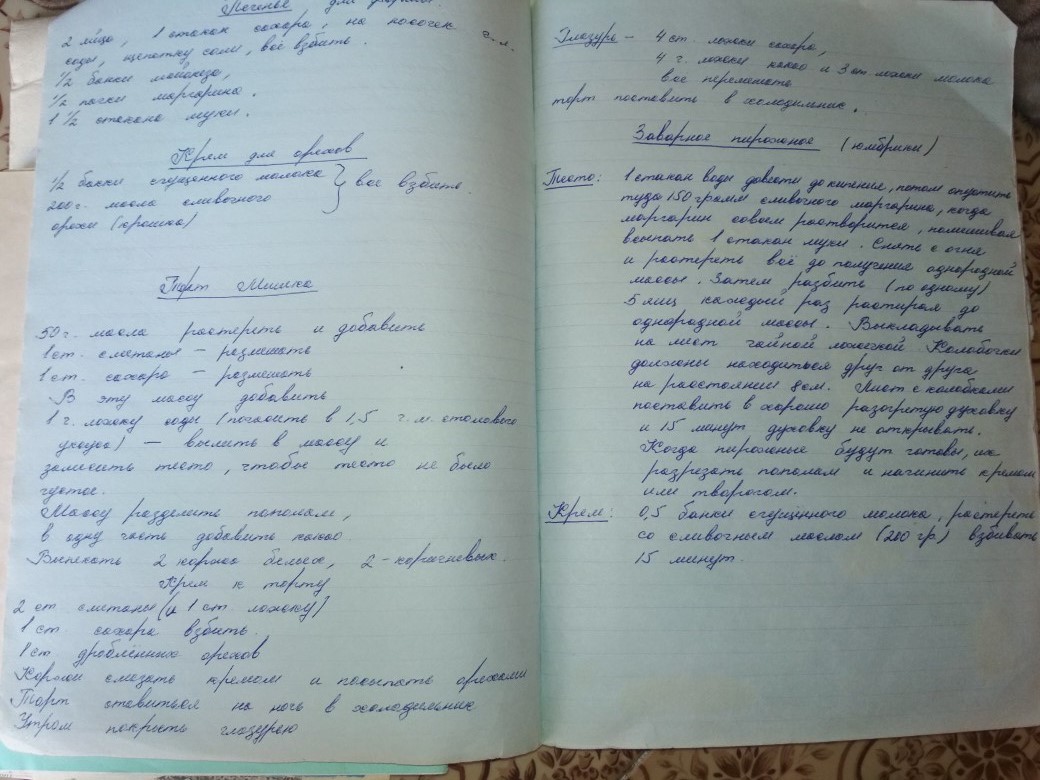 Печенье для
2 яйца, 1 стакан сахара, на кончик
соды, щепотку соли, всё взбить.
1/2 банки майонеза,
1/2 пачки маргарина.
1 1/2 стакана муки.
Крем для орехов
1/2 банки сгущенного молока
200 г. масла сливочного
орехи (крошка)
} все взбить.
Торт Мишка
50 г. масла растереть и добавить
1 ст. сметаны – размешать
1 ст. сахара – размешать
В эту массу добавить
1 г. ложку соды (погасить в 1,5 г. л. столового
уксуса) – вылить в массу и
замесить тесто, чтобы тесто не было
густое.
Массу разделить пополам,
в одну часть добавить какао.
Выпекать 2 коржа белых, 2 – коричневых.
Крем к торту
2 ст. сметаны (и 1 ст. ложку)
1 ст. сахара взбить.
1 ст дроблённых орехов
Коржи смазать кремом и посыпать орехами
Торт ставиться на ночь в холодильник
Утром покрыть глазурею
Глазурь – 4 ст. ложки сахара,
4 г. ложки какао и 3 ст. ложки молока
все перемешать
торт поставить в холодильник.
Заварное пирожное (юмбрики)
Тесто: 1 стакан воды довести до кипения, потом опустить
туда 150 грамм сливочного маргарина, когда
маргарин совсем растворится, помешивая
всыпать 1 стакан муки. Снять с огня
и растереть всё до получения однородной
массы. Затем разбить (по одному)
5 яиц каждый раз растирая до
однородной массы. Выкладывать
на лист чайной ложечкой Колобочки
должны находиться друг от друга
на расстоянии 8 см. Лист с колобками
поставить в хорошо разогретую духовку
и 15 минут духовку не открывать.
Когда пирожные будут готовы, их
разрезать пополам и начинить кремом
или творогом.
Крем: 0,5 банки сгущённого молока, растереть
со сливочным маслом (200 гр) взбивать
15 минут.